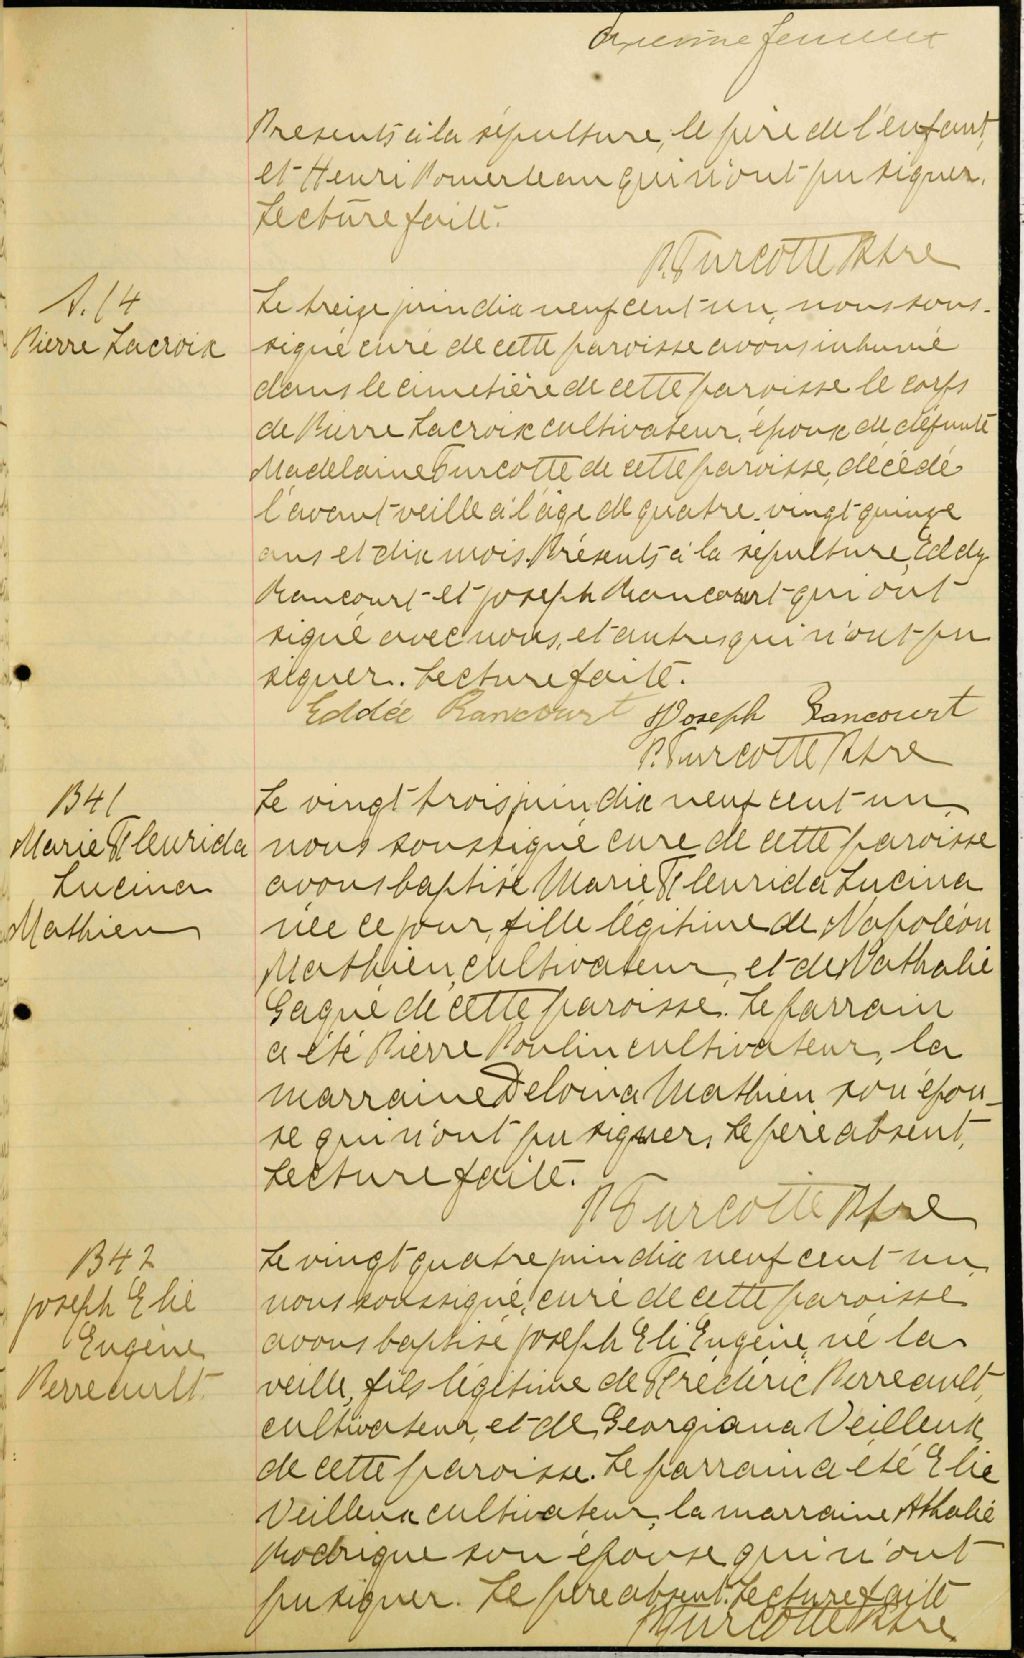 feuillet
Presents à la sépulture, le père de l'enfant,
et Henri Pomerleau qui n'ont pu signer.
Lecture faite.
P. Turcotte Ptre
S. 14
Pierre Lacroix
Le treize juin dix neuf cent un, nous sous-
signé curé de cette paroisse avons inhumé
dans le cimetière de cette paroisse le corps
de Pierre Lacroix cultivateur, époux de défunte
Madelaine Turcotte de cette paroisse, décédé
l'avant veille à l'âge de quatre-vingt quinze
ans et dix mois. Présents à la sépulture, Eddy
Rancourt et Joseph Rancourt qui ont
signé avec nous, et autres qui n'ont pu
signer. Lecture faite.
Eddée Rancourt Joseph Rancourt
P. Turcotte Ptre
B 41
Marie Fleurida
Lucina
Mathieu
Le vingt trois juin dix neuf cent un
nous soussigné curé de cette paroisse
avons baptisé Marie Fleurida Lucina
née ce jour, fille légitime de Napoléon
Mathieu, cultivateur, et de Nathalie
Gagné de cette paroisse. Le parrain
a été Pierre Poulin cultivateur, la
marraine Delvina Mathieu son épou-
se qui n'ont pu signer. Le père absent,
Lecture faite.
P Turcotte Ptre
B 42
Joseph Elie
Eugène
Perreault
Le vingt quatre juin dix neuf cent un
nous soussigné, curé de cette paroisse
avons baptisé Joseph Eli Eugène, né la
veille, fils légitime de Frédéric Perreault,
cultivateur, et de Georgiana Veilleux
de cette paroisse. Le parrain a été Elie
Veilleux cultivateur, la marraine Athalie
Rodrigue son épouse qui n'ont
pu signer. Le père absent. Lecture faite
P Turcotte Ptre